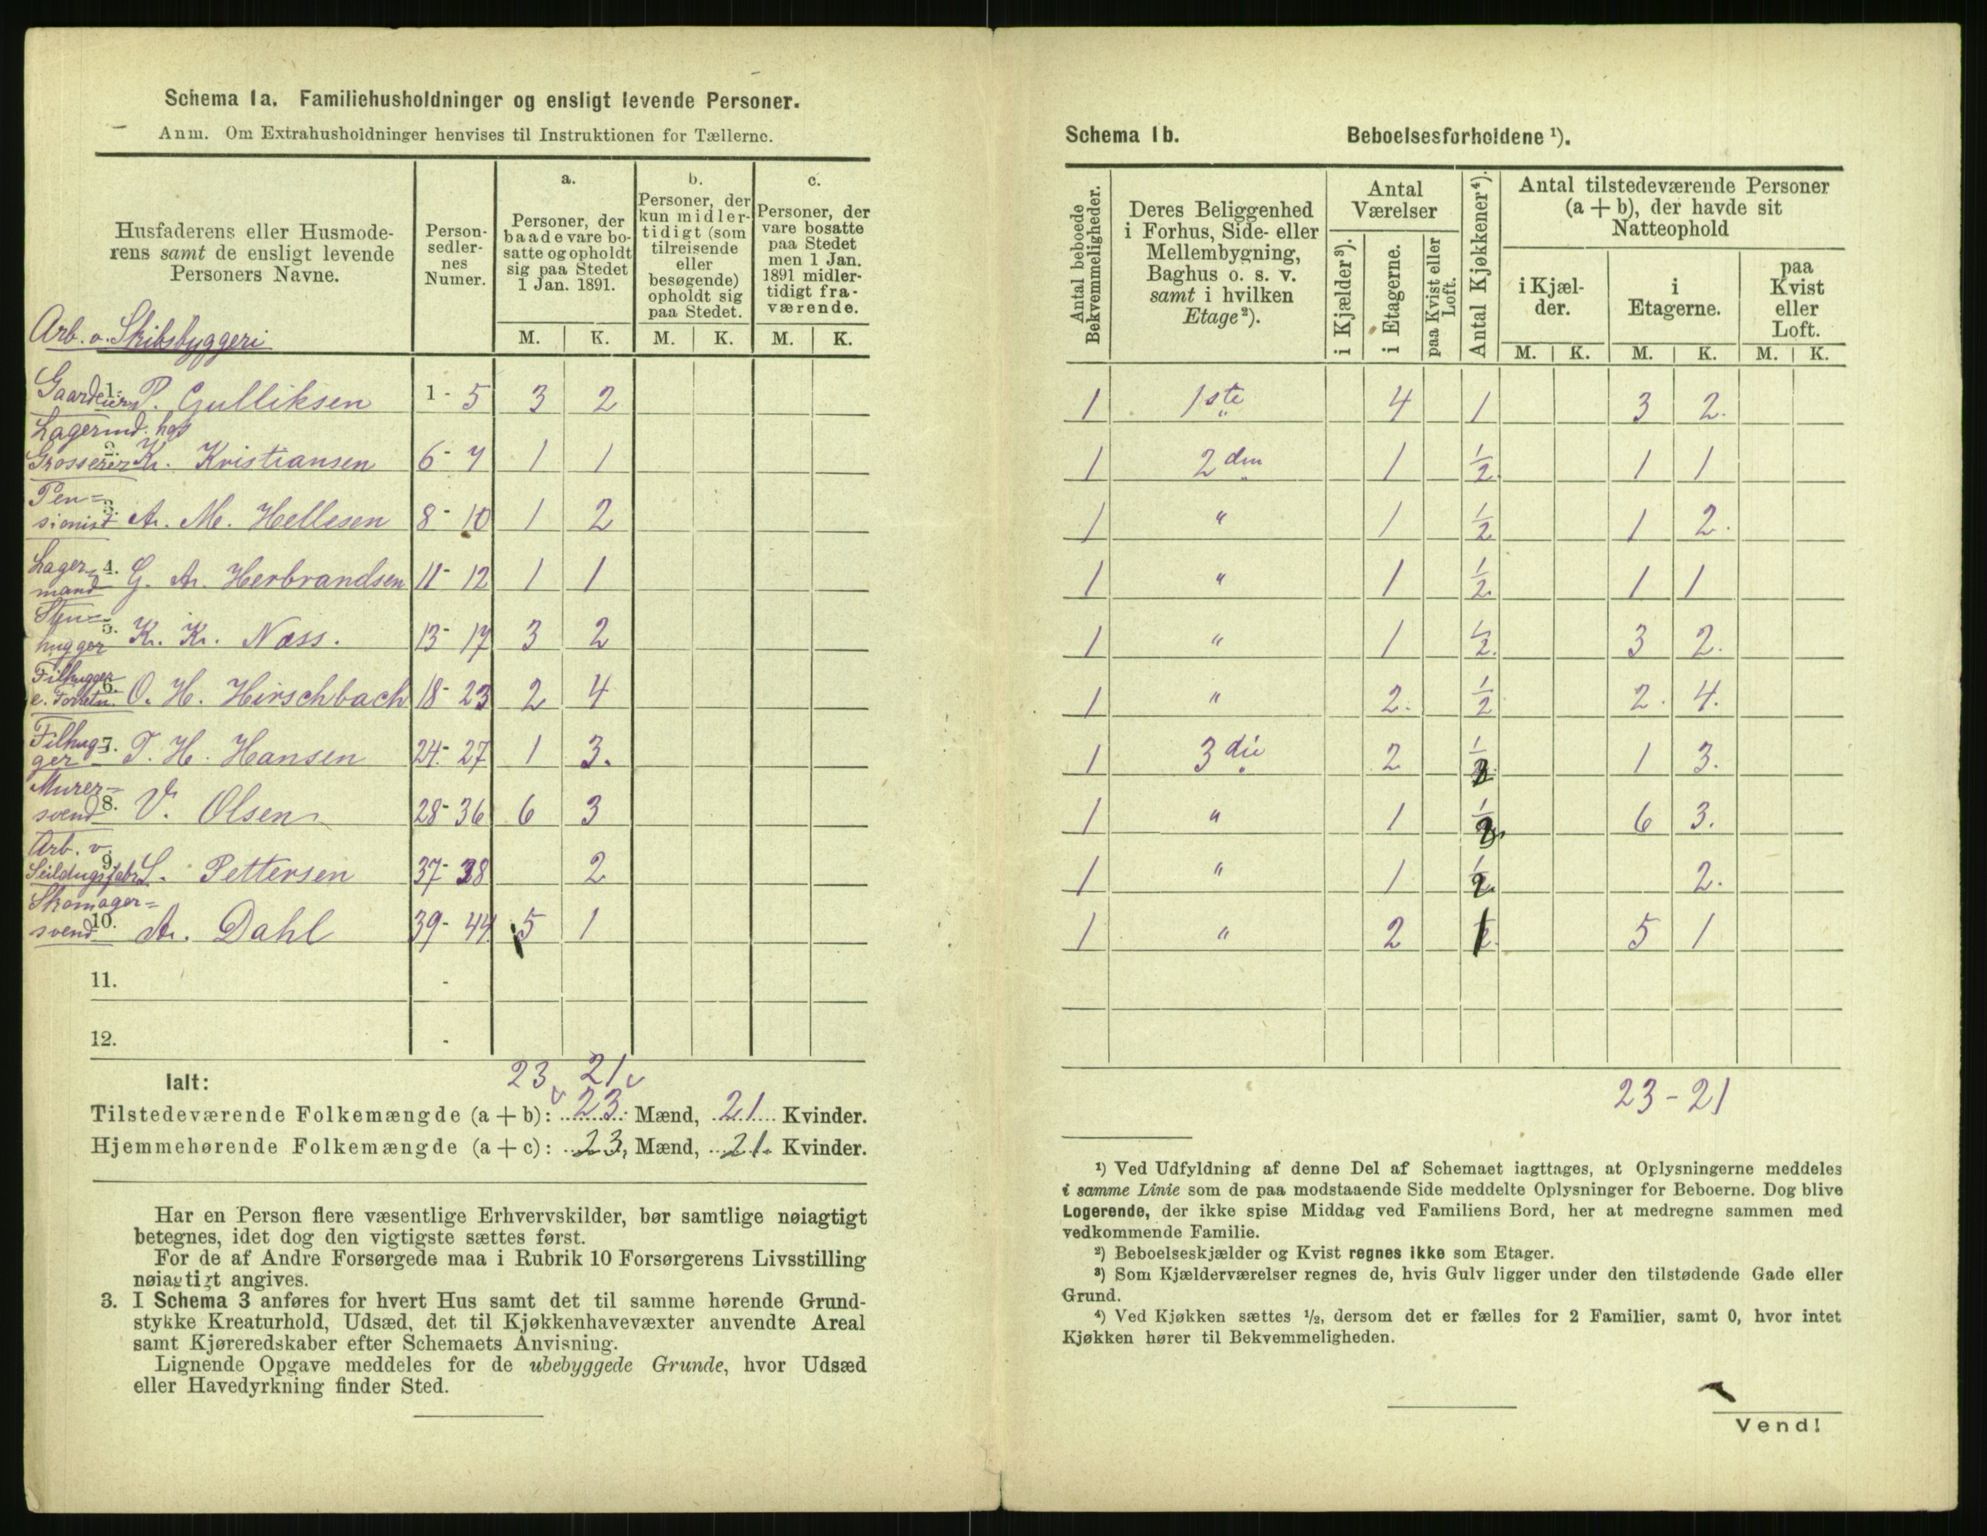 Schema 1a. Familiehusholdninger og ensligt levende Personer.
Anm. Om Extrahusholdninger henvises til Instruktionen for Tællerne.
Husfaderens eller Husmoderens samt de ensligt levende Personers Navne.
Person-sedler-nes Numer.
a. Personer, der baade vare bosatte og opholdt sig paa Stedet 1 Jan. 1891.
b. Personer, der kun midlertidigt (som tilreisende eller besøgende) opholdt sig paa Stedet.
c. Personer, der vare bosatte paa Stedet men 1 Jan. 1891 midlertidigt fraværende.
M. K. M. K. M. K.
Arb. v. Skibsbyggeri
Gaardeier 1. P. Gulliksen 1 - 5 3 2
Lagermd. hos
Grosserer 2. Kr. Kristiansen 6 - 7 1 1
Pen=
sionist 3. A. M. Hellesen 8 - 10 1 2
Lager=
mand 4. G. A. Herbrandsen 11 - 12 1 1
Sten=
hugger 5. K. Kr. Næss. 13 - 17 3 2
Filhugger
e. Forretn. 6. O. H. Hirschbach 18 - 23 2 4
Filhug=
ger 7. T. H. Hansen 24 - 27 1 3.
Murer=
svend 8. V. Olsen 28 - 36 6 3
Arb. v.
Seildugsfabr. 9. S. Pettersen 37 - 38 2
Skomager=
svend 10. A. Dahl 39 - 44 5 1
11. -
12. -
Ialt: 23 21
Tilstedeværende Folkemængde (a + b): 23. Mænd, 21 Kvinder.
Hjemmehørende Folkemængde (a + c): 23, Mænd, 21. Kvinder.
Har en Person flere væsentlige Erhvervskilder, bør samtlige nøiagtigt
betegnes, idet dog den vigtigste sættes først.
For de af Andre Forsørgede maa i Rubrik 10 Forsørgerens Livsstilling
nøiagtigt angives.
3. I Schema 3 anføres for hvert Hus samt det til samme hørende Grund-
stykke Kreaturhold, Udsæd, det til Kjøkkenhavevæxter anvendte Areal
samt Kjøreredskaber efter Schemaets Anvisning.
Lignende Opgave meddeles for de ubebyggede Grunde, hvor Udsæd
eller Havedyrkning finder Sted.
Schema 1b. Beboelsesforholdene ¹).
Antal beboede Bekvemmeligheder.
Deres Beliggenhed i Forhus, Side- eller Mellembygning, Baghus o. s. v. samt i hvilken Etage²).
Antal Værelser
i Kjælder³).
i Etagerne.
paa Kvist eller Loft.
Antal Kjøkkener⁴).
Antal tilstedeværende Personer (a + b), der havde sit Natteophold
i Kjælder.
i Etagerne.
paa Kvist eller Loft.
M. K. M. K. M. K.
1 1ste 4 1 3 2.
1 2den 1 ½ 1 1
1 " 1 ½ 1 2.
1 " 1 ½ 1 1
1 " 1 ½ 3 2.
1 " 2. ½ 2. 4.
1 3die 2 ½ 1 3.
1 " 1 ½ 6 3.
1 " 1 ½ 2.
1 " 2 1 5 1
23 - 21
¹) Ved Udfyldning af denne Del af Schemaet iagttages, at Oplysningerne meddeles
i samme Linie som de paa modstaaende Side meddelte Oplysninger for Beboerne. Dog blive
Logerende, der ikke spise Middag ved Familiens Bord, her at medregne sammen med
vedkommende Familie.
²) Beboelseskjælder og Kvist regnes ikke som Etager.
³) Som Kjælderværelser regnes de, hvis Gulv ligger under den tilstødende Gade eller
Grund.
⁴) Ved Kjøkken sættes ½, dersom det er fælles for 2 Familier, samt 0, hvor intet
Kjøkken hører til Bekvemmeligheden.
Vend!